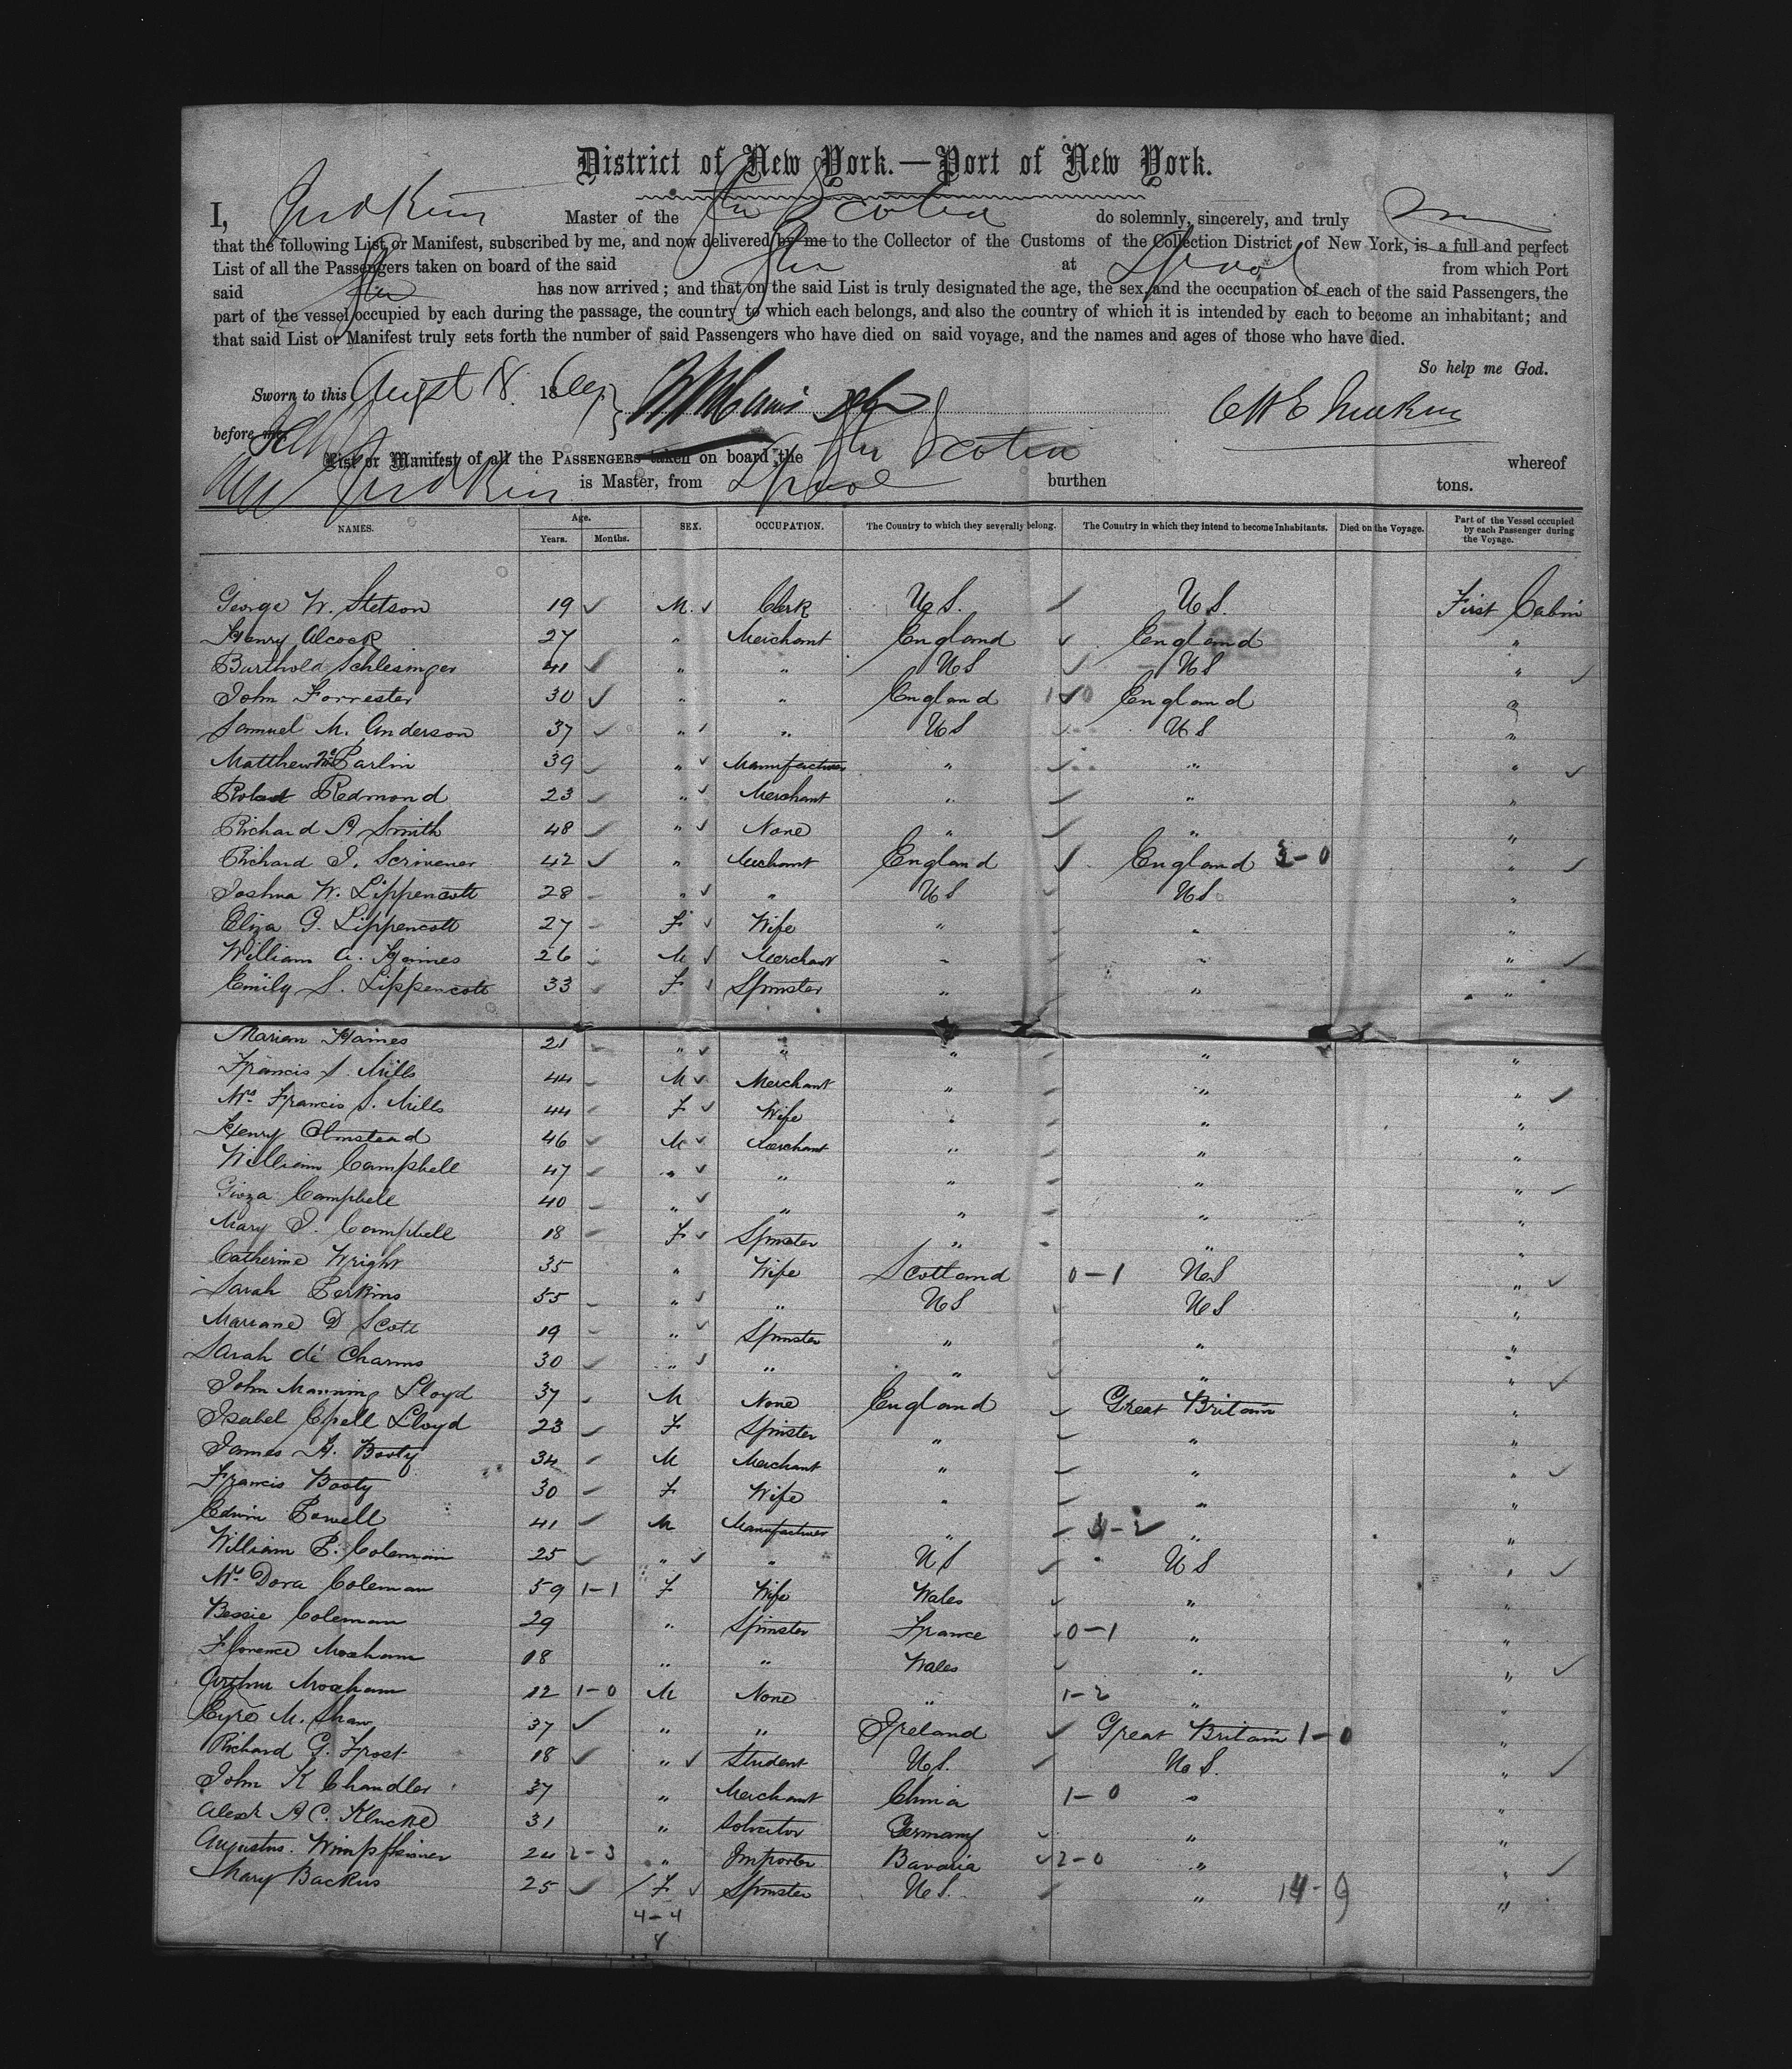 District of New York.—Port of New York.
I, Judkins Master of the Str Scotia do solemnly, sincerely, and truly
that the following List or Manifest, subscribed by me, and now delivered by me to the Collector of the Customs of the Collection District of New York, is a full and perfect
List of all the Passengers taken on board of the said Str at Lpool from which Port
said Str has now arrived; and that on the said List is truly designated the age, the sex and the occupation of each of the said Passengers, the
part of the vessel occupied by each during the passage, the country to which each belongs, and also the country of which it is intended by each to become an inhabitant; and
that said List or Manifest truly sets forth the number of said Passengers who have died on said voyage, and the names and ages of those who have died.
So help me God.
Sworn to this August 18 18
before me,
List or Manifest of all the PASSENGERS taken on board the Str Scotia whereof
Judkins is Master, from Lpool burthen tons.
NAMES. Age. Years. Months. SEX. OCCUPATION. The Country to which they severally belong. The Country in which they intend to become Inhabitants. Died on the Voyage. Part of the Vessel occupied by each Passenger during the Voyage.
George W. Stetson 19 M. Clerk U S. U S. First Cabin
Henry Alcock 27 " Merchant England England "
Barthold Schlesinger 41 " " U S U S "
John Forrester 30 " " England England "
Samuel M. Anderson 37 " " U S U S "
Matthew Parlin 39 " Manufacturer " " "
Robert Redmond 23 " Merchant " " "
Richard A Smith 48 " None " " "
Richard J. Scrivener 42 " Merchant England England 3-0 "
Joshua W. Lippencott 28 " " U S U S "
Eliza G. Lippencott 27 F Wife " " "
William A. Haines 26 M Merchant " " "
Emily S. Lippencott 33 F Spinster " " "
Marian Haines 21 " " " " "
Francis S. Mills 44 M Merchant " " "
Mrs Francis S. Mills 44 F Wife " " "
Henry Olmstead 46 M Merchant " " "
William Campbell 47 " " " " "
Campbell 40 " " " " "
Mary J. Campbell 18 F Spinster " " "
Catherine Wright 35 " Wife Scotland 0-1 U S "
Sarah Perkins 55 " " U S U S "
Mariane D Scott 19 " Spinster " " "
Sarah de Charms 30 " " " " "
John Manning Lloyd 37 M None England Great Britain "
Isabel Lloyd 23 F Spinster " " "
James H. Booty 34 M Merchant " " "
Francis Booty 30 F Wife " " "
Edwin Powell 41 M Manufacturer " " "
William P. Coleman 25 " " U S U S "
Mrs Dora Coleman 59 1-1 F Wife Wales " "
Bessie Coleman 29 " Spinster France 0-1 " "
Florence Moxham 18 " " Wales " "
Arthur Moxham 12 1-0 M None " 1-2 " "
M. Shaw 37 " " Ireland Great Britain 1-0 "
Richard G. Frost 18 " Student U S. U S. "
John K Chandler 37 " Merchant China 1-0 " "
Alexr A C. Klucke 31 " Solicitor Germany " "
Augustus 24 2-3 " Importer Bavaria 2-0 " "
Mary Backus 25 F Spinster U S. " 14-9 "
4-4
8